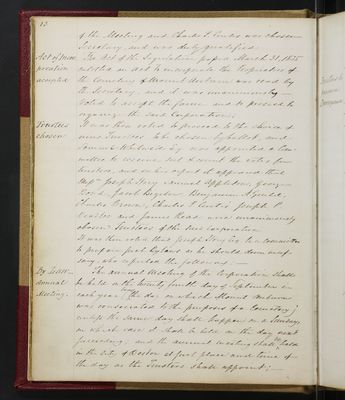 13
of the Meeting and Charles P. Curtis was chosen
Secretary and was duly qualified.
Act of Incor- The Act of the Legislature passed March 31, 1835
poration entitled an Act to incorporate the Proprietors of
accepted the Cemetery of Mount Auburn was read by
the Secretary, and it was unanimously
voted to accept the same and to proceed to
organize the said Corporation.
Trustees It was then voted to proceed to the choice of
chosen. nine Trustees
Samuel was appointed a Com-
mittee to receive, sort & count the votes for
Trustees, and on his report it appeared that
Joseph Story, Samuel Appleton, George
Bond, Jacob Bigelow, Benjamin A. Gould,
Charles Brown, Charles P. Curtis, Joseph P.
Bradlee and James Read were unanimously
chosen Trustees of the new corporation.
It was then voted that Joseph Story Esq. be a Committee
to prepare such Bylaws as he should deem neces-
sary, who reported the following. —
By Laws. The annual Meeting of the Corporation shall
Annual be held on the twenty fourth day of September in
Meeting. each year (the day on which Mount Auburn
was consecrated to the purposes of a Cemetery)
unless the same day shall happen on a Sunday,
in which case it shall be held on the day next
preceding; and the annual meeting shall be held
in the City of Boston at such place and time of
the day as the Trustees shall appoint; —